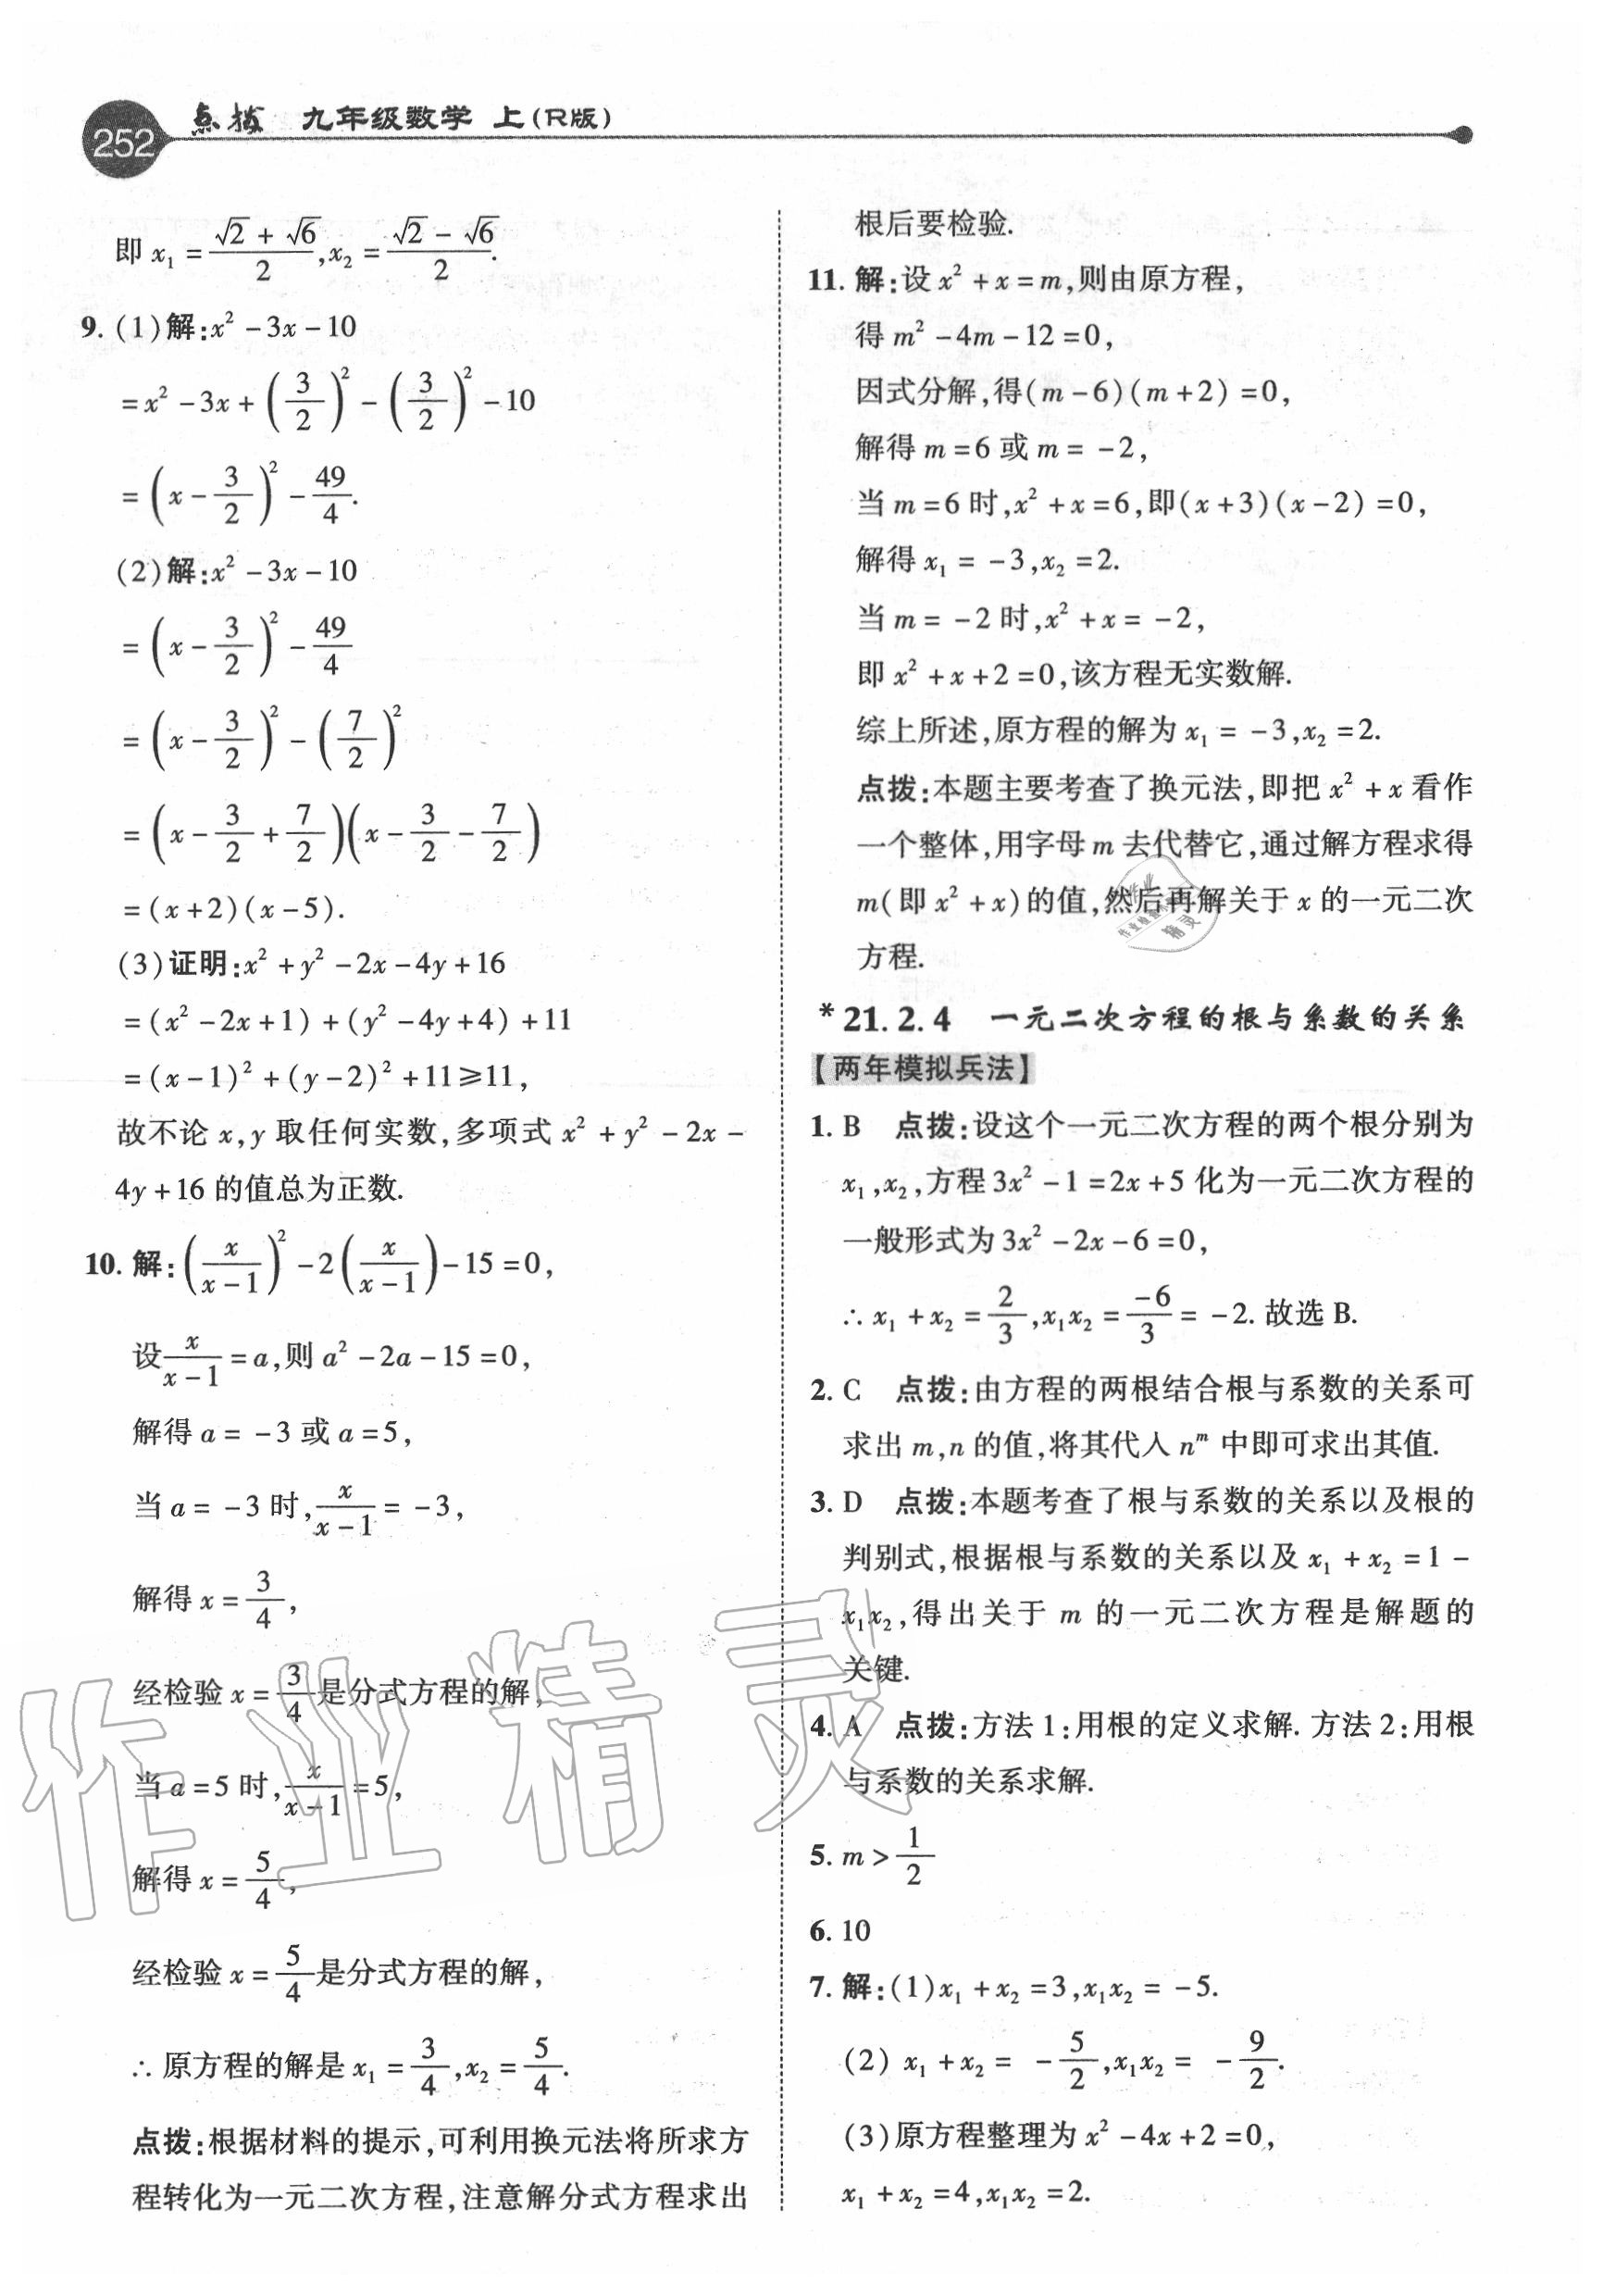 252 点拨 九年级数学 上(R版)
即 x₁ = (√2 + √6)/2, x₂ = (√2 - √6)/2.
9. (1)解:x² - 3x - 10
= x² - 3x + (3/2)² - (3/2)² - 10
= (x - 3/2)² - 49/4.
(2)解:x² - 3x - 10
= (x - 3/2)² - 49/4
= (x - 3/2)² - (7/2)²
= (x - 3/2 + 7/2)(x - 3/2 - 7/2)
= (x+2)(x-5).
(3)证明:x² + y² - 2x - 4y + 16
= (x² - 2x + 1) + (y² - 4y + 4) + 11
= (x-1)² + (y-2)² + 11 ≥ 11,
故不论 x,y 取任何实数,多项式 x² + y² - 2x -
4y + 16 的值总为正数.
10. 解:(x/(x-1))² - 2(x/(x-1)) - 15 = 0,
设 x/(x-1) = a,则 a² - 2a - 15 = 0,
解得 a = -3 或 a = 5,
当 a = -3 时, x/(x-1) = -3,
解得 x = 3/4,
经检验 x = 3/4 是分式方程的解,
当 a = 5 时, x/(x-1) = 5,
解得 x = 5/4,
经检验 x = 5/4 是分式方程的解,
∴ 原方程的解是 x₁ = 3/4, x₂ = 5/4.
点拨:根据材料的提示,可利用换元法将所求方
程转化为一元二次方程,注意解分式方程求出
根后要检验.
11. 解:设 x² + x = m,则由原方程,
得 m² - 4m - 12 = 0,
因式分解,得(m-6)(m+2) = 0,
解得 m = 6 或 m = -2,
当 m = 6 时,x² + x = 6,即(x+3)(x-2) = 0,
解得 x₁ = -3,x₂ = 2.
当 m = -2 时,x² + x = -2,
即 x² + x + 2 = 0,该方程无实数解.
综上所述,原方程的解为 x₁ = -3,x₂ = 2.
点拨:本题主要考查了换元法,即把 x² + x 看作
一个整体,用字母 m 去代替它,通过解方程求得
m(即 x² + x)的值,然后再解关于 x 的一元二次
方程.
*21.2.4 一元二次方程的根与系数的关系
【两年模拟兵法】
1. B 点拨:设这个一元二次方程的两个根分别为
x₁,x₂,方程 3x² - 1 = 2x + 5 化为一元二次方程的
一般形式为 3x² - 2x - 6 = 0,
∴ x₁ + x₂ = 2/3, x₁x₂ = -6/3 = -2. 故选 B.
2. C 点拨:由方程的两根结合根与系数的关系可
求出 m,n 的值,将其代人 nᵐ 中即可求出其值.
3. D 点拨:本题考查了根与系数的关系以及根的
判别式,根据根与系数的关系以及 x₁ + x₂ = 1 -
x₁x₂,得出关于 m 的一元二次方程是解题的
关键.
4. A 点拨:方法 1:用根的定义求解. 方法 2:用根
与系数的关系求解.
5. m > 1/2
6. 10
7. 解:(1)x₁ + x₂ = 3,x₁x₂ = -5.
(2) x₁ + x₂ = -5/2, x₁x₂ = -9/2.
(3)原方程整理为 x² - 4x + 2 = 0,
x₁ + x₂ = 4,x₁x₂ = 2.
作业精灵